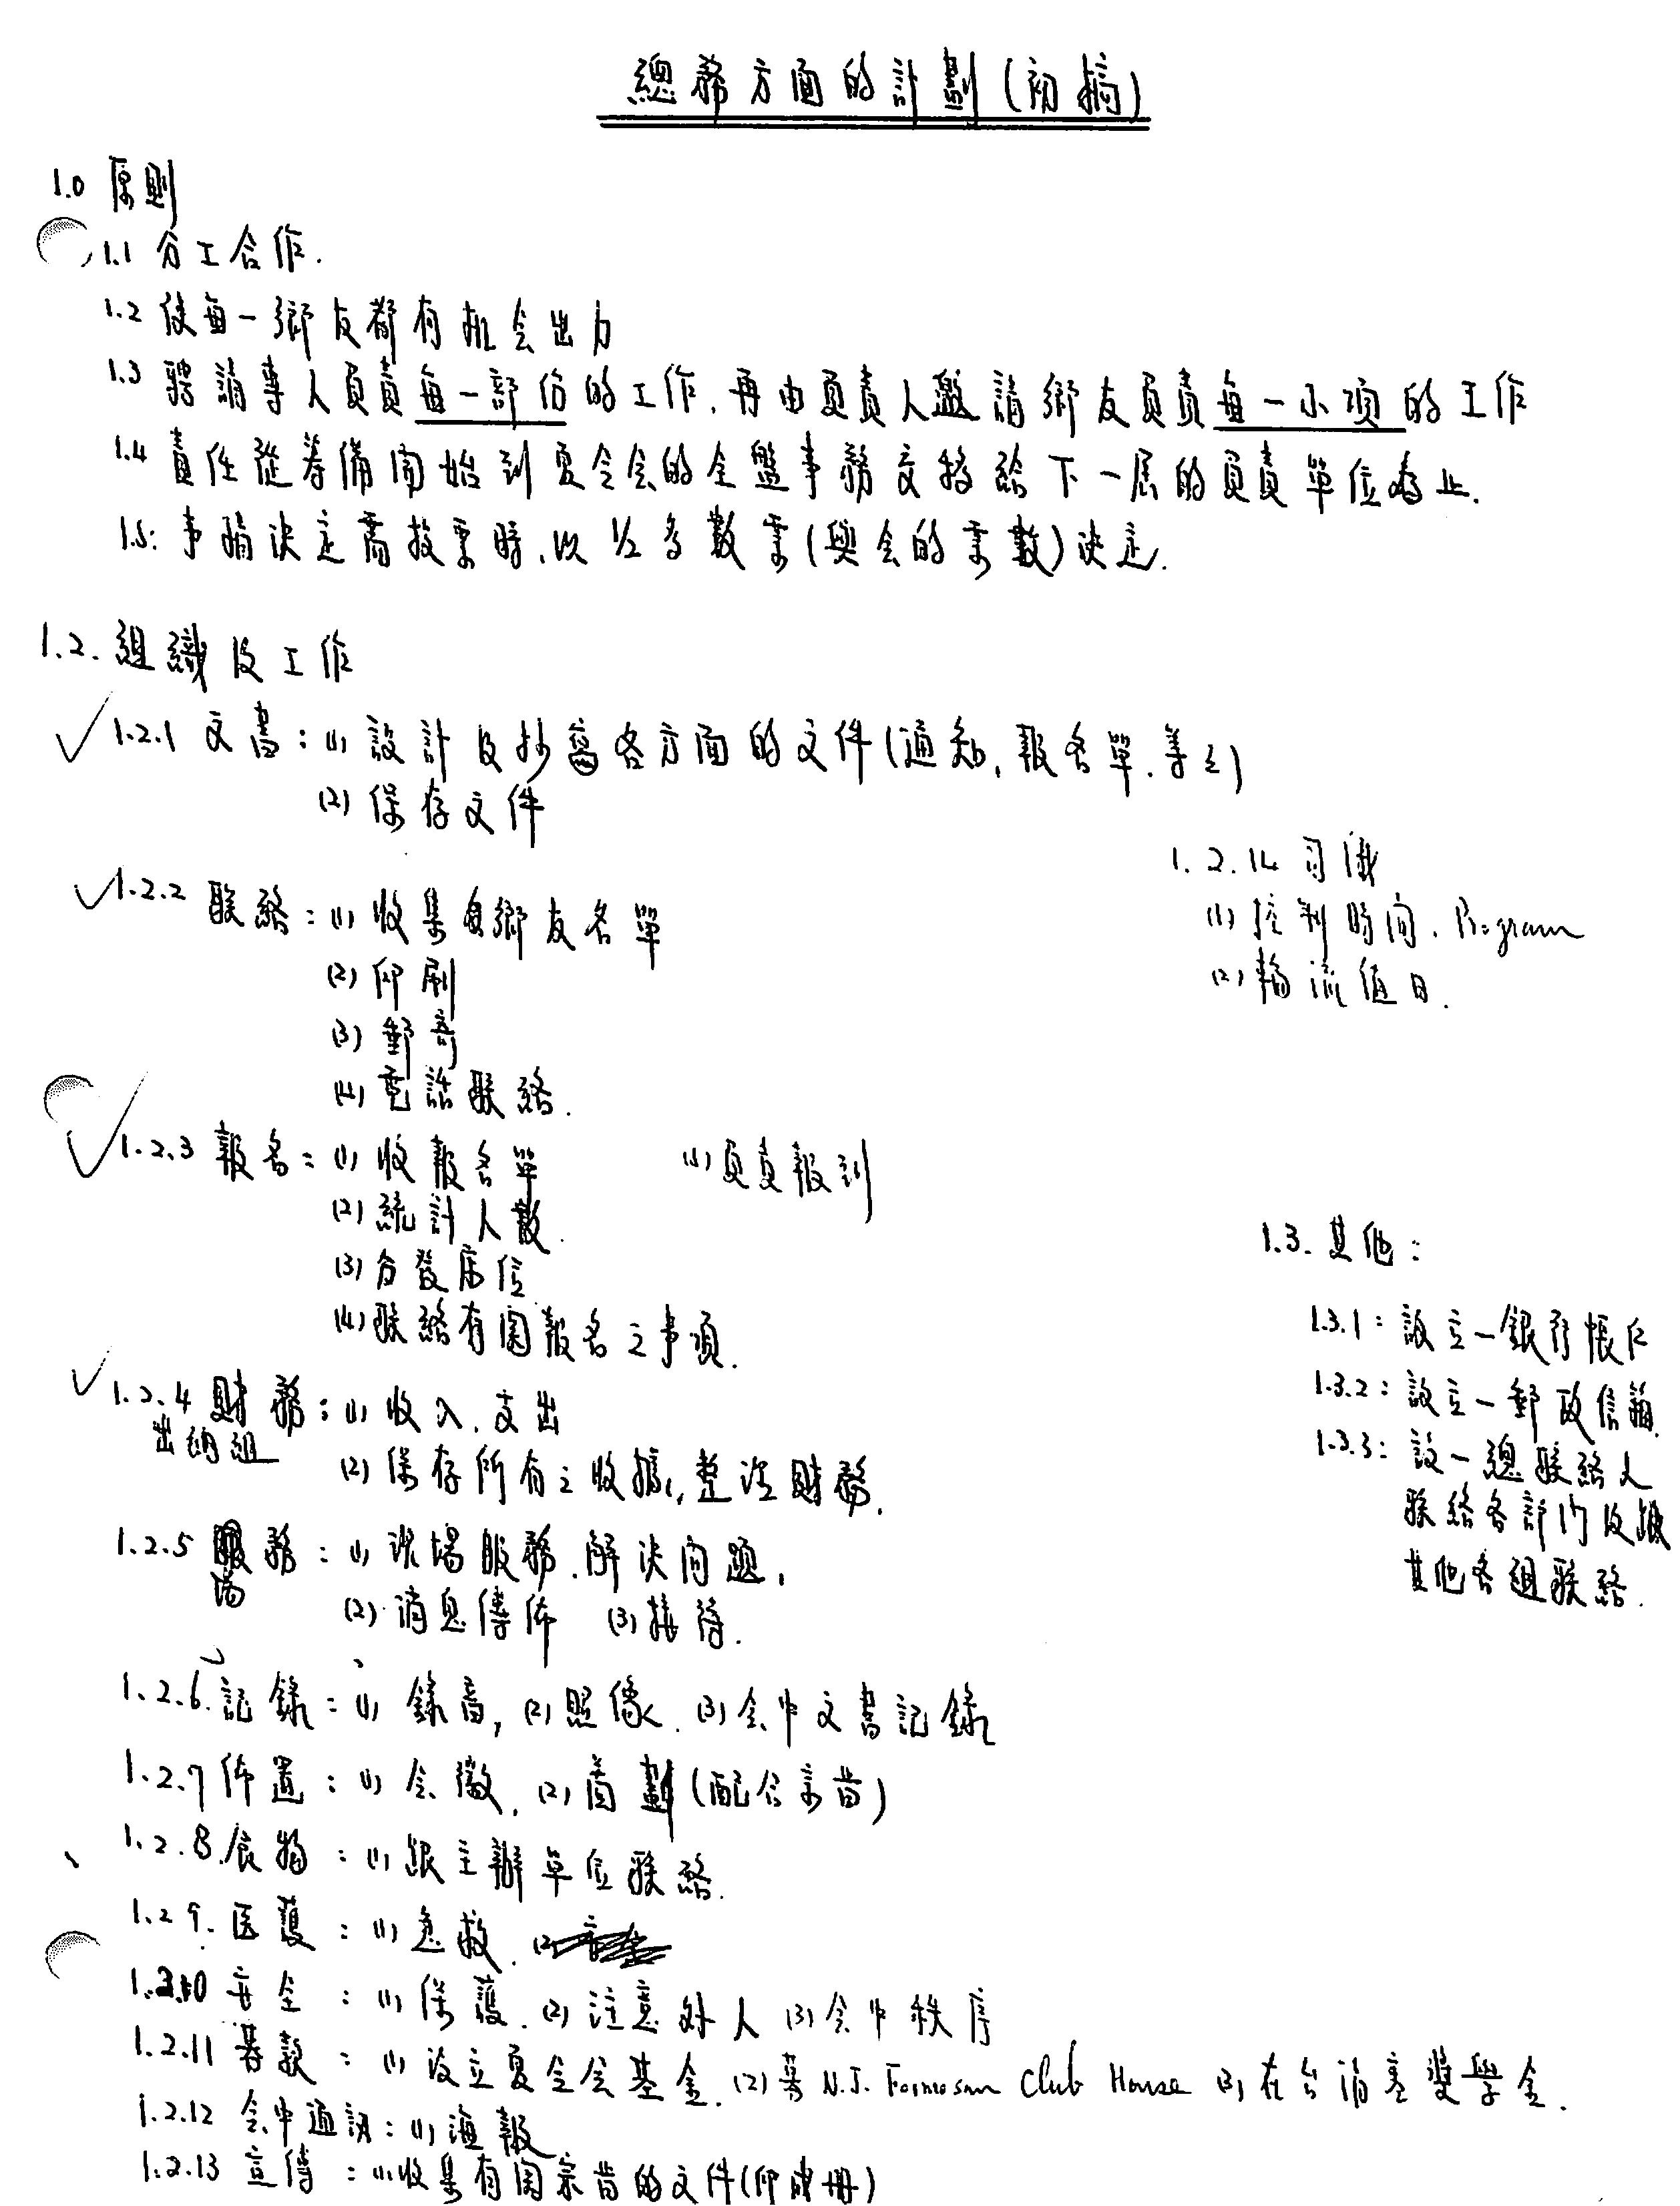 總務方面的計劃(初稿)
1.0 原則
1.1 分工合作.
1.2 使每一鄉友都有机会出力
1.3 聘請專人負責每一部份的工作,再由負責人邀請鄉友負責每一小項的工作
1.4 責任從籌備開始到夏令会的全盤事務交接給下一屆的負責單位為止.
1.5: 事情決定需投票時,以1/2多數票(與会的票數)決定.
1.2. 組織及工作
1.2.1 文書:(1) 設計及抄寫各方面的文件(通知,報名單.等之)
(2) 保存文件
1.2.2 联絡:(1) 收集各鄉友名單
(2) 印刷
(3) 郵寄
(4) 電話联絡.
1.2.3 報名:(1) 收報名單
(2) 統計人數.
(3) 分發床位
(4) 联絡有関報名之事項.
(4) 負責報到
1.2.4 財務:(1) 收入.支出
出納組
(2) 保存所有之收據,整理財務.
1.2.5 服務:(1) 現場服務.解決问題,
(2) 消息傳佈 (3) 接待.
1.2.6. 記錄:(1) 錄音,(2) 照像.(3) 会中文書記錄
1.2.7 佈置:(1) 会徽.(2) 圖劃(配合宗旨)
1.2.8. 食物:(1) 跟主辦單位联絡.
1.2.9. 医護:(1) 急救.
1.2.10 安全:(1) 保護.(2) 注意外人 (3) 会中秩序
1.2.11 募款:(1) 设立夏令会基金.(2) 募 N.J. Formosan Club House (3) 在台清寒獎學金.
1.2.12 会中通訊:(1) 海報
1.2.13 宣傳:(1) 收集有関宗旨的文件(印成冊)
1.2.14 司儀
(1) 控制時间.Program
(2) 輪流值日.
1.3. 其他:
1.3.1: 設立一銀行帳户
1.3.2: 設立一郵政信箱.
1.3.3: 設一總联絡人
联絡各部门及跟
其他各組联絡.